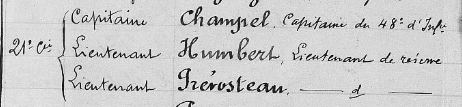 Capitaine Champel, Capitaine du 48e d'Infie
21e Cie Lieutenant Humbert, Lieutenant de réserve
Lieutenant Prévosteau, — d —